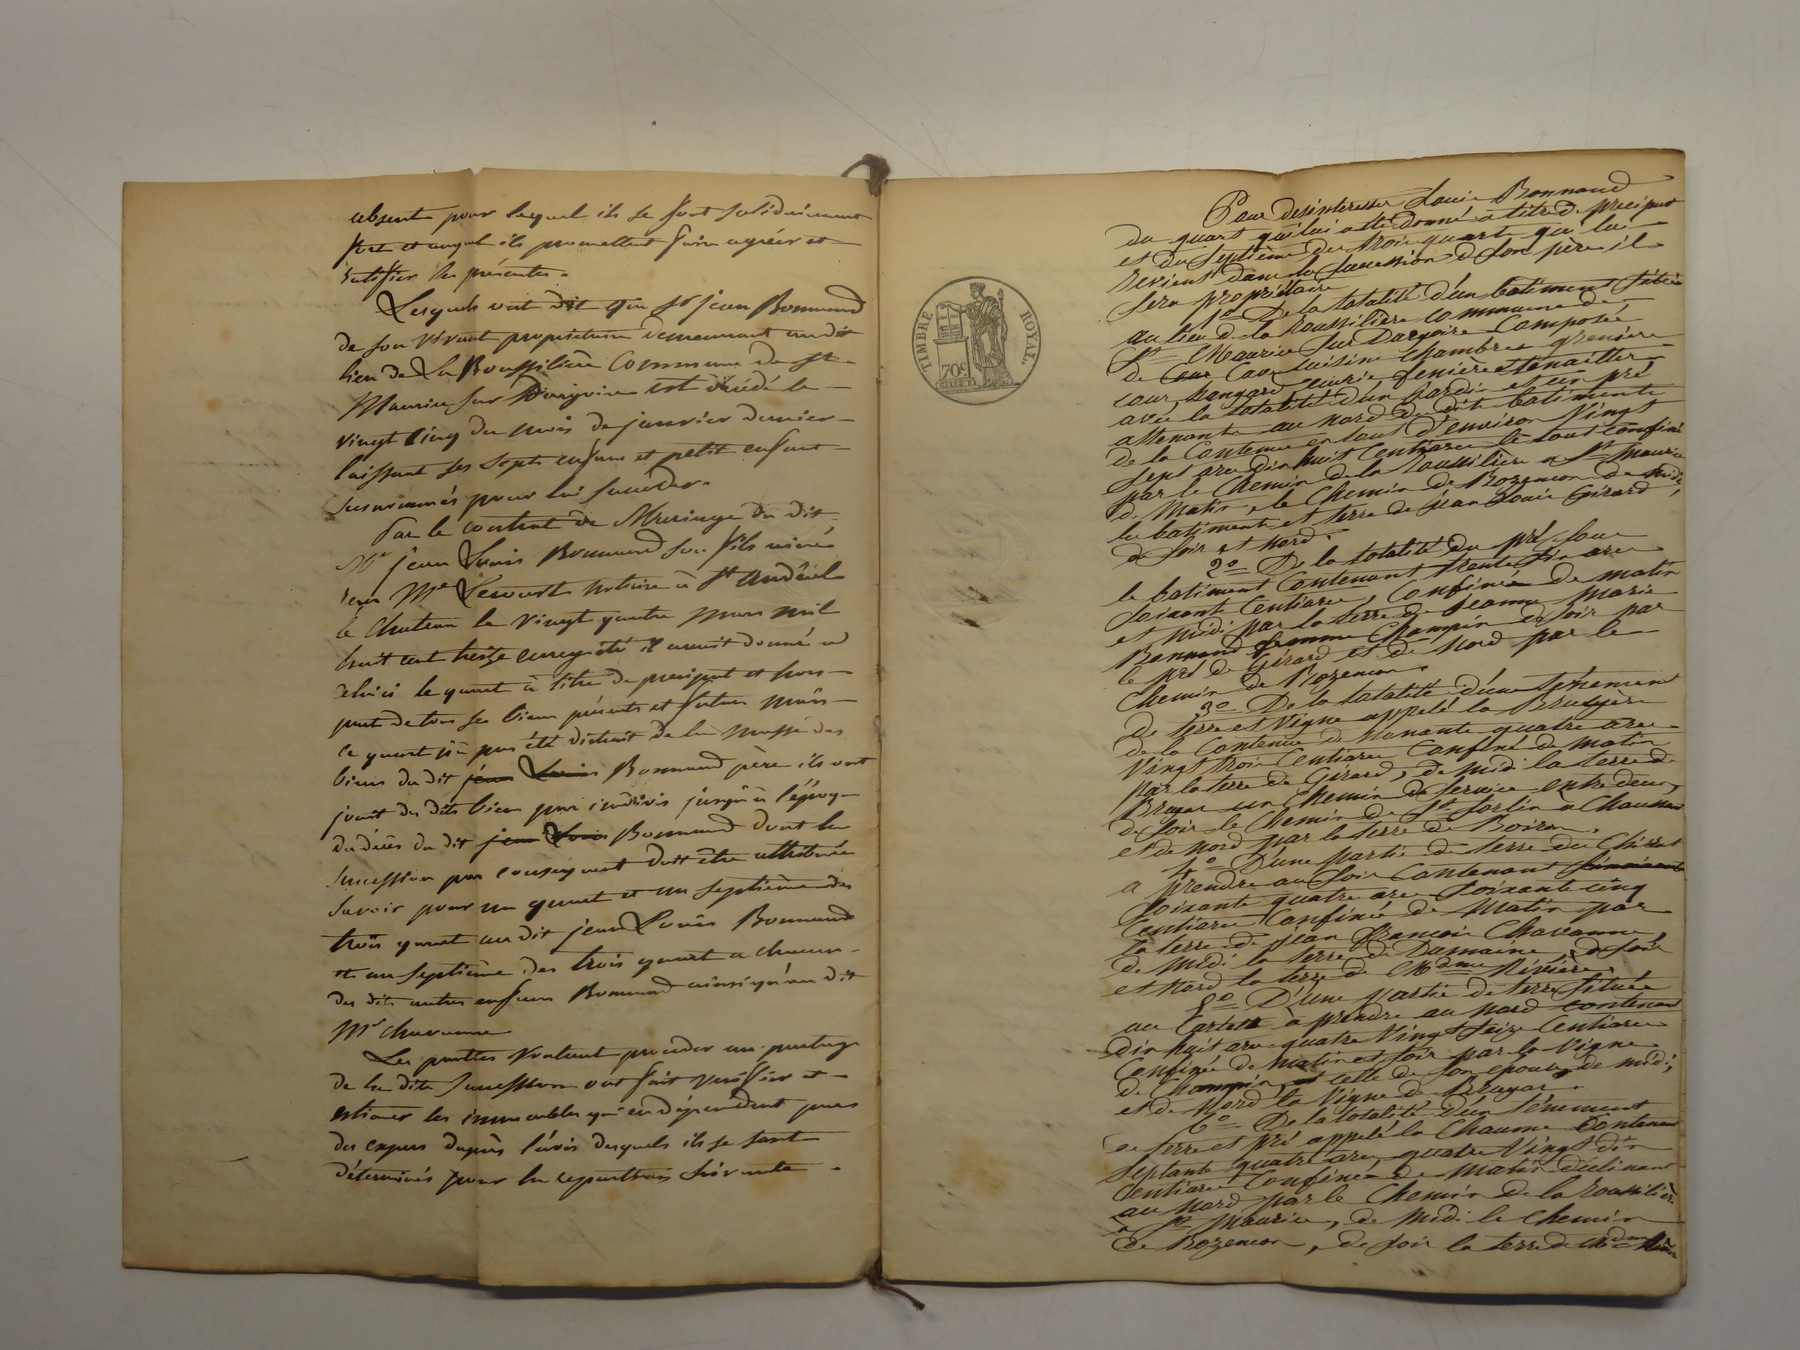 absente pour lequel ils se font solidairement
fort et auquel ils promettent faire agréer et
ratifier les présentes.
Lesquels ont dit que Sr jean Bonnand
de son vivant propriétaire demeurant au dit
lieu de La Roussilière Commune de St
Maurice sur Dargoire est décédé le
vingt cinq du mois de janvier dernier
laissant ses septs enfans et petit enfant
surnommés pour lui succéder.
Par le contrat de Mariage du dit
Sr jean Louis Bonnand son fils ainé
reçu Me Lecourt notaire à St andéol
le Chateau le vingt quatre mars mil
huit cent treize enregistré il avait donné a
celui ci le quart à titre de preciput et hors
part de tous ses biens présents et futurs mais
ce quart n'a pas été distrait de la masse des
biens du dit jean Louis Bonnand père ils ont
jouit des dits biens par indivis jusqu'à l'époque
du décès du dit jean Louis Bonnand dont la
succession par conséquent doit être attribuée
Savoir pour un quart et un septième des
trois quart au dit jean Louis Bonnand
et un septième des trois quart a chacun
des dits autres enfans Bonnand ainsi qu'au dit
Mr Chavanne
Les parties voulant procéder au partage
de la dite Succession ont fait vérifier et
estimer les immeubles qui en dépendent par
des expers daprès l'avis desquels ils se sont
déterminés pour la repartition suivante.
TIMBRE ROYAL
70c
Pour desinteresser Louis Bonnand
du quart qui lui a été donné a titre de preciput
et du Septième des trois quart qui lui
revient dans la succession de son père il
sera propriétaire
1o De la totalité d'un batiment situé
au lieu de la Roussilière commune de
St Maurice sur Dargoire Composée
de Cour Cave cuisine chambres greniers
cour, hangard, écurie fenière etenailler
avec la totalité d'un Jardin et un pré
attenant au nord du dit batiment
de la Contenue en tout d'environ Vingt
Sept are dix huit Centiares le tout confiné
par le Chemin de la Roussilière a St Maurice
de Matin, le Chemin de Rozemon de midi,
le batiment et terre de jean Louis Girard
de soir et Nord.
2o De la totalité du pré sous
le batiment Contenant trente six are
soixante Centiares, Confinée de matin
et midi par la terre de Jeanne Marie
Bonnand femme Champin de soir par
le pré de Girard et de Nord par le
Chemin de Rozemon
3o De la totalité d'une ténement
de terre et Vigne appelé la Bruyère
de la Contenue de Nonante quatre are
Vingt trois Centiares Confiné de matin
par la terre de Girard, de midi la terre de
Bruyas un Chemin de Service entre deux,
de soir le Chemin de St Sorlin a Chaussan
et de Nord par la terre de Boiron.
4o D'une partie de terre du Chirat
a prendre au soir Contenant
soixante quatre are soixante cinq
Centiares Confinée de Matin par
la terre de jean François Chavanne,
de midi la terre de Damaine, de soir
et Nord la terre de Mdme Rivière.
5o D'une partie de terre située
au à prendre au nord contenant
dix huit are quatre Vingt seize Centiares
Confinée de matin et soir par la Vigne
de Champin, et celle de son épouse de midi,
et de Nord la Vigne de Bruyas.
6o De la totalité d'un ténement
de terre et pré appelé la Chaume Contenant
septante quatre are quatre Vingt dix
Centiares Confinée de Matin déclinant
au Nord par le Chemin de la Roussilière
à St Maurice, de Midi le Chemin
de Rozemon, de soir la terre de Mdme Rivière